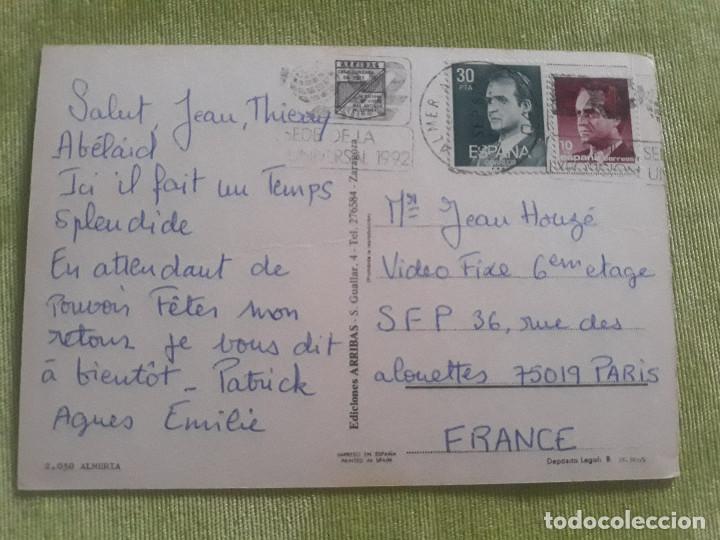 Salut, Jean, Thierry
Abélaid
Ici il fait un Temps
splendide
En attendant de
Pouvoir Fêter mon
retour je vous dit
à bientôt - Patrick
Agnes Emilie
2.050 ALMERIA
Ediciones ARRIBAS - S. Guallar, 4 - Tel. 276584 - Zaragoza
IMPRESO EN ESPAÑA
PRINTED IN SPAIN
ARRIBAS
SEDE DE LA
UNIVERSAL 1992
ALMER
30
PTA
ESPAÑA
CORREOS
10
españa correos
SE
EXPOSICION UN
Mr Jean Houzé
Video Fixe 6em etage
SFP 36, rue des
alouettes 75019 PARIS
FRANCE
Depósito Legal: B.
todocoleccion.net